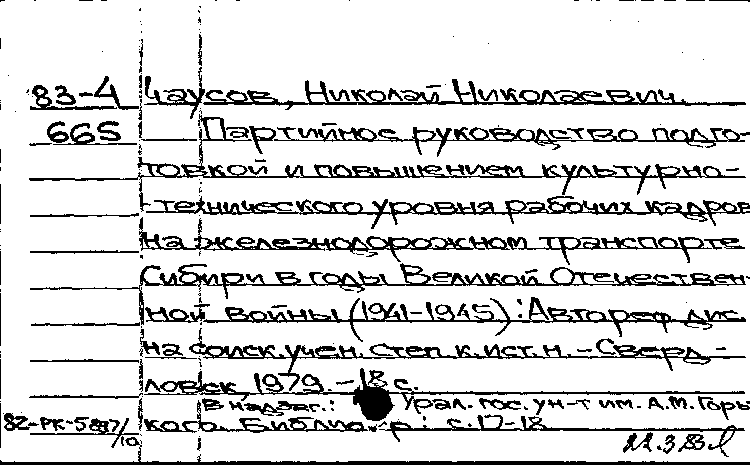 83-4 Чаусов, Николай Николаевич.
665 Партийное руководство подго-
товкой и повышением культурно-
-технического уровня рабочих кадров
на железнодорожном транспорте
Сибири в годы Великой Отечествен-
ной войны (1941-1945): Автореф. дис.
на соиск. учен. степ. к. ист. н. - Сверд-
ловск, 1979. - 18 с.
В надзаг.: Урал. гос. ун-т им. А.М. Горь
82-РК-5887/10 кого. Библиогр.: с. 17-18
22.3.83